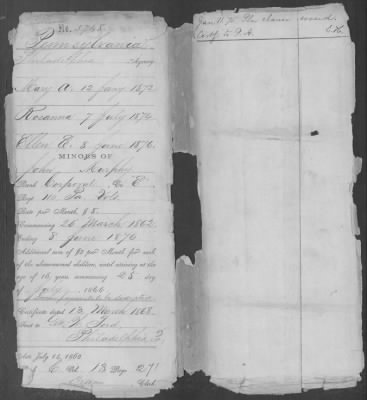 No. 8748
Pennsylvania
Philadelphia Agency
Mary A. 12 Jany 1872
Rosanna 7 July 1874
Ellen E. 8 June 1876
MINORS OF
John Murphy
Rank Corporal, Co E
Reg't 116 Pa. Vols
Rate per Month $8.
Commencing 26 March 1862
Ending 8 June 1876
Additional sum of $2 per Month for each
of the abovenamed children, until arriving at the
age of 16 years, commencing 25 day
of July, 1866.
Certificate dated 13 March 1868
Sent to
Ford,
Philadelphia
Act July 14, 1862
E Vol. 13 Page 271
Clerk
Jan 11.
issued.
Certf. to P. A.